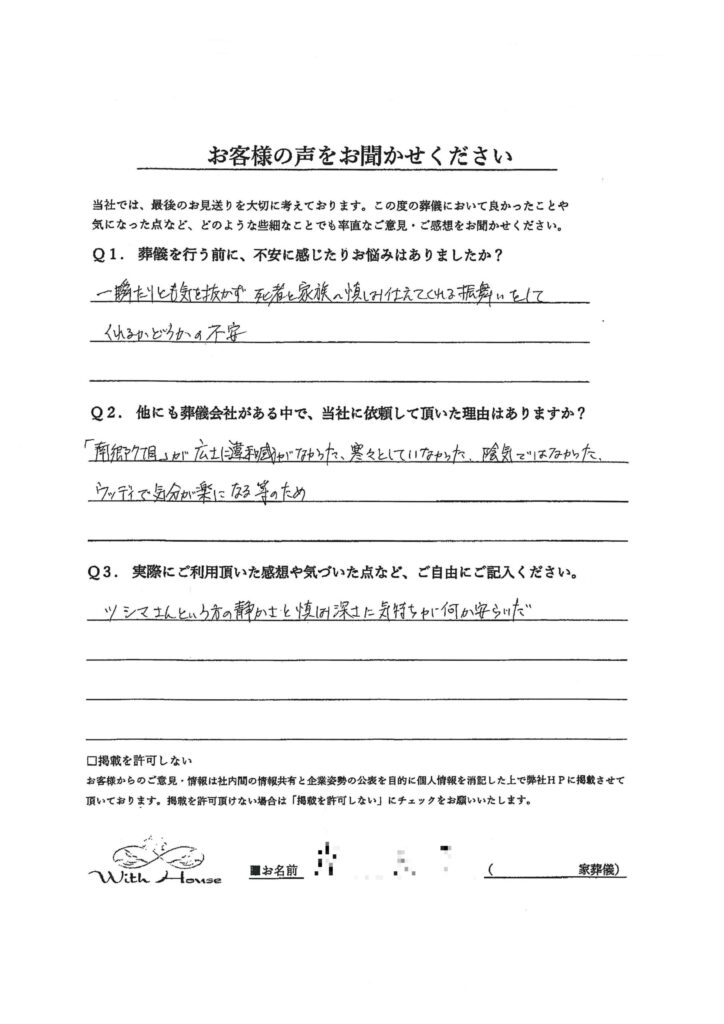 お客様の声をお聞かせください
当社では、最後のお見送りを大切に考えております。この度の葬儀において良かったことや
気になった点など、どのような些細なことでも率直なご意見・ご感想をお聞かせください。
Q1. 葬儀を行う前に、不安に感じたりお悩みはありましたか？
一瞬たりとも気を抜かず 死者と家族へ慎しみ仕えてくれる振舞いをして
くれるかどうかの不安
Q2. 他にも葬儀会社がある中で、当社に依頼して頂いた理由はありますか？
「南郷7丁目」が 広さに違和感がなかった、寒々としていなかった、陰気ではなかった、
ウッディで気分が楽になる等のため
Q3. 実際にご利用頂いた感想や気づいた点など、ご自由にご記入ください。
ツシマさんという方の静かさと慎み深さに気持ちが何か安らいだ
□掲載を許可しない
お客様からのご意見・情報は社内間の情報共有と企業姿勢の公表を目的に個人情報を消記した上で弊社HPに掲載させて
頂いております。掲載を許可頂けない場合は「掲載を許可しない」にチェックをお願いいたします。
With House
■お名前
( 家葬儀)